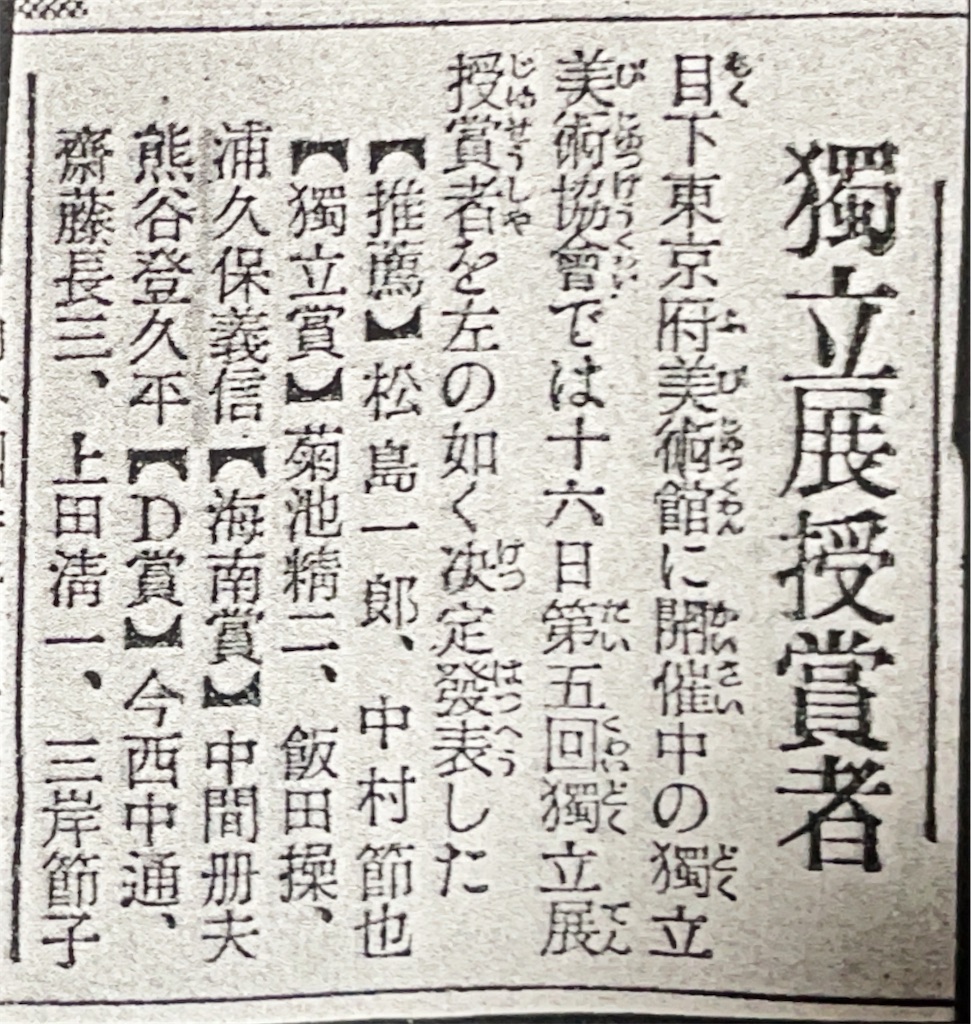 獨立展授賞者
目下東京府美術館に開催中の獨立
美術協會では十六日第五回獨立展
授賞者を左の如く決定發表した
【推薦】松島一郎、中村節也
【獨立賞】菊池精二、飯田操、
浦久保義信【海南賞】中間册夫
熊谷登久平【D賞】今西中通、
齋藤長三、上田清一、三岸節子